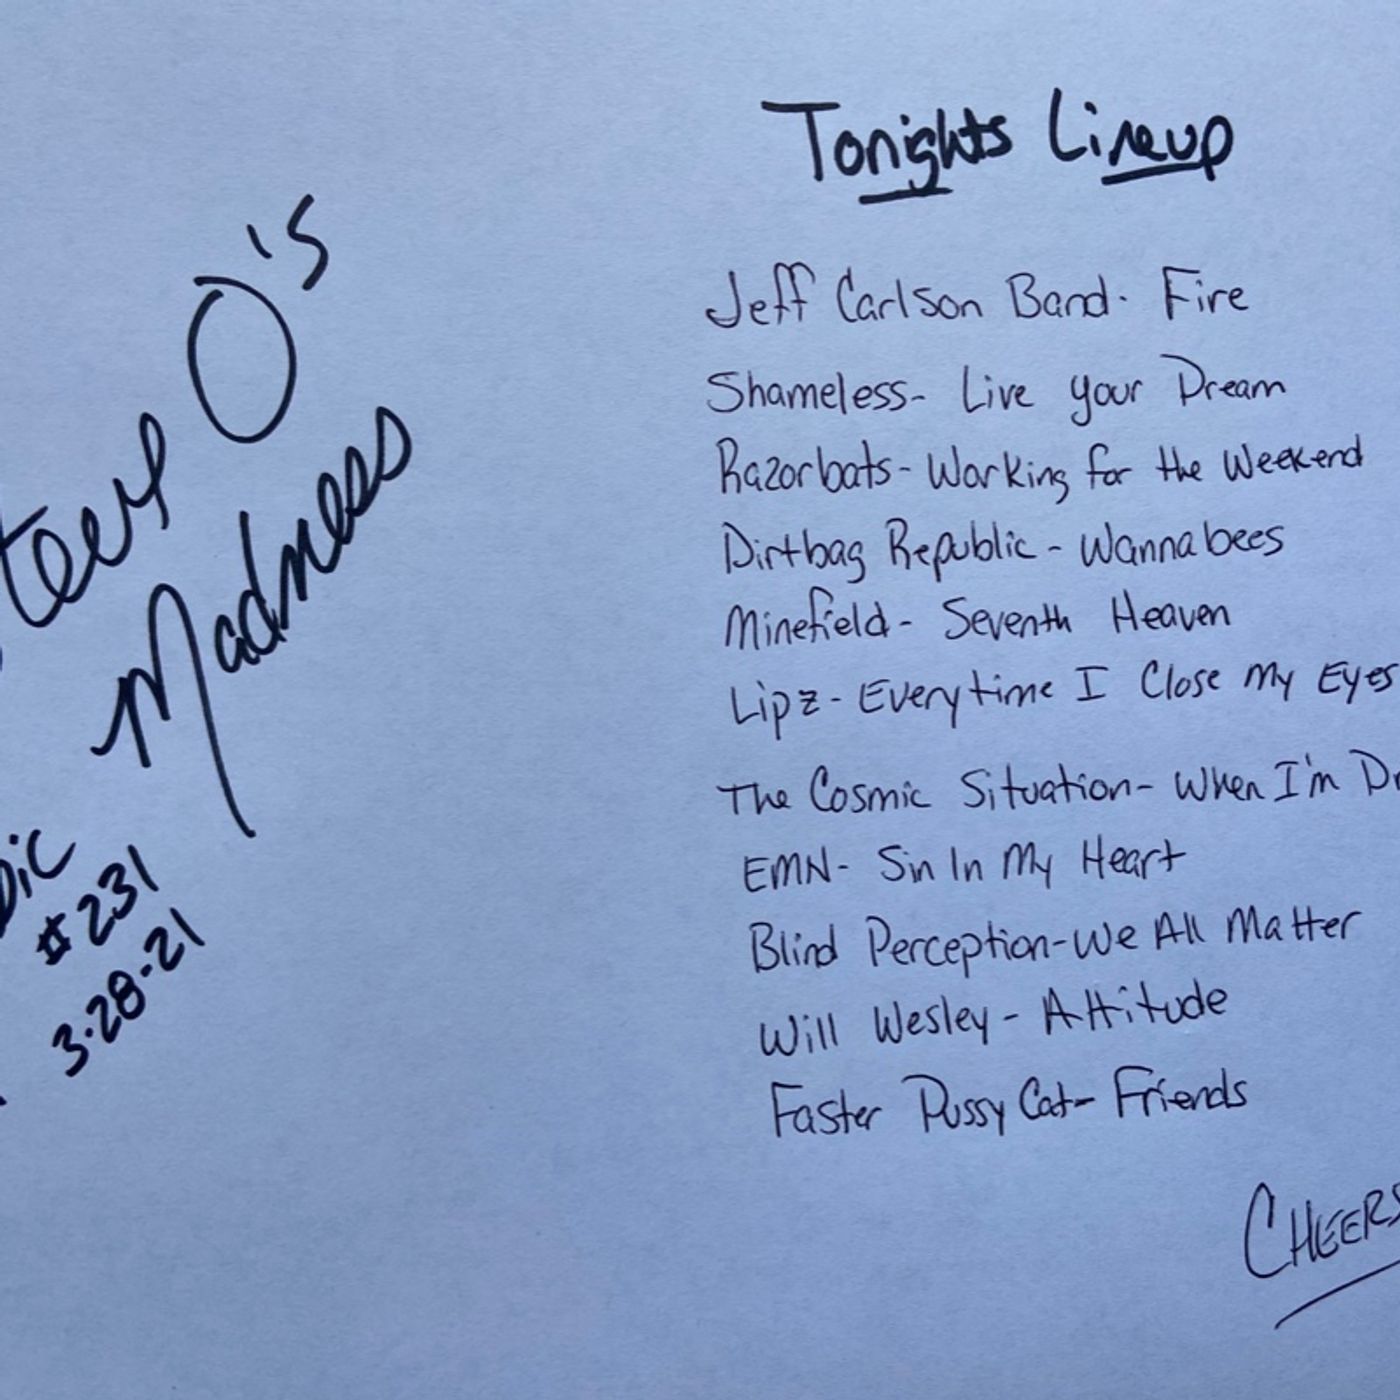 O's
Madness
#231
3.28.21
Tonights Lineup
Jeff Carlson Band. Fire
Shameless- Live your Dream
Razorbats- Working for the Weekend
Dirtbag Republic- Wannabees
Minefield- Seventh Heaven
Lipz- Everytime I Close My Eyes
The Cosmic Situation- When I'm
EMN- Sin In My Heart
Blind Perception-We All Matter
Will Wesley- Attitude
Faster Pussy Cat- Friends
CHEERS